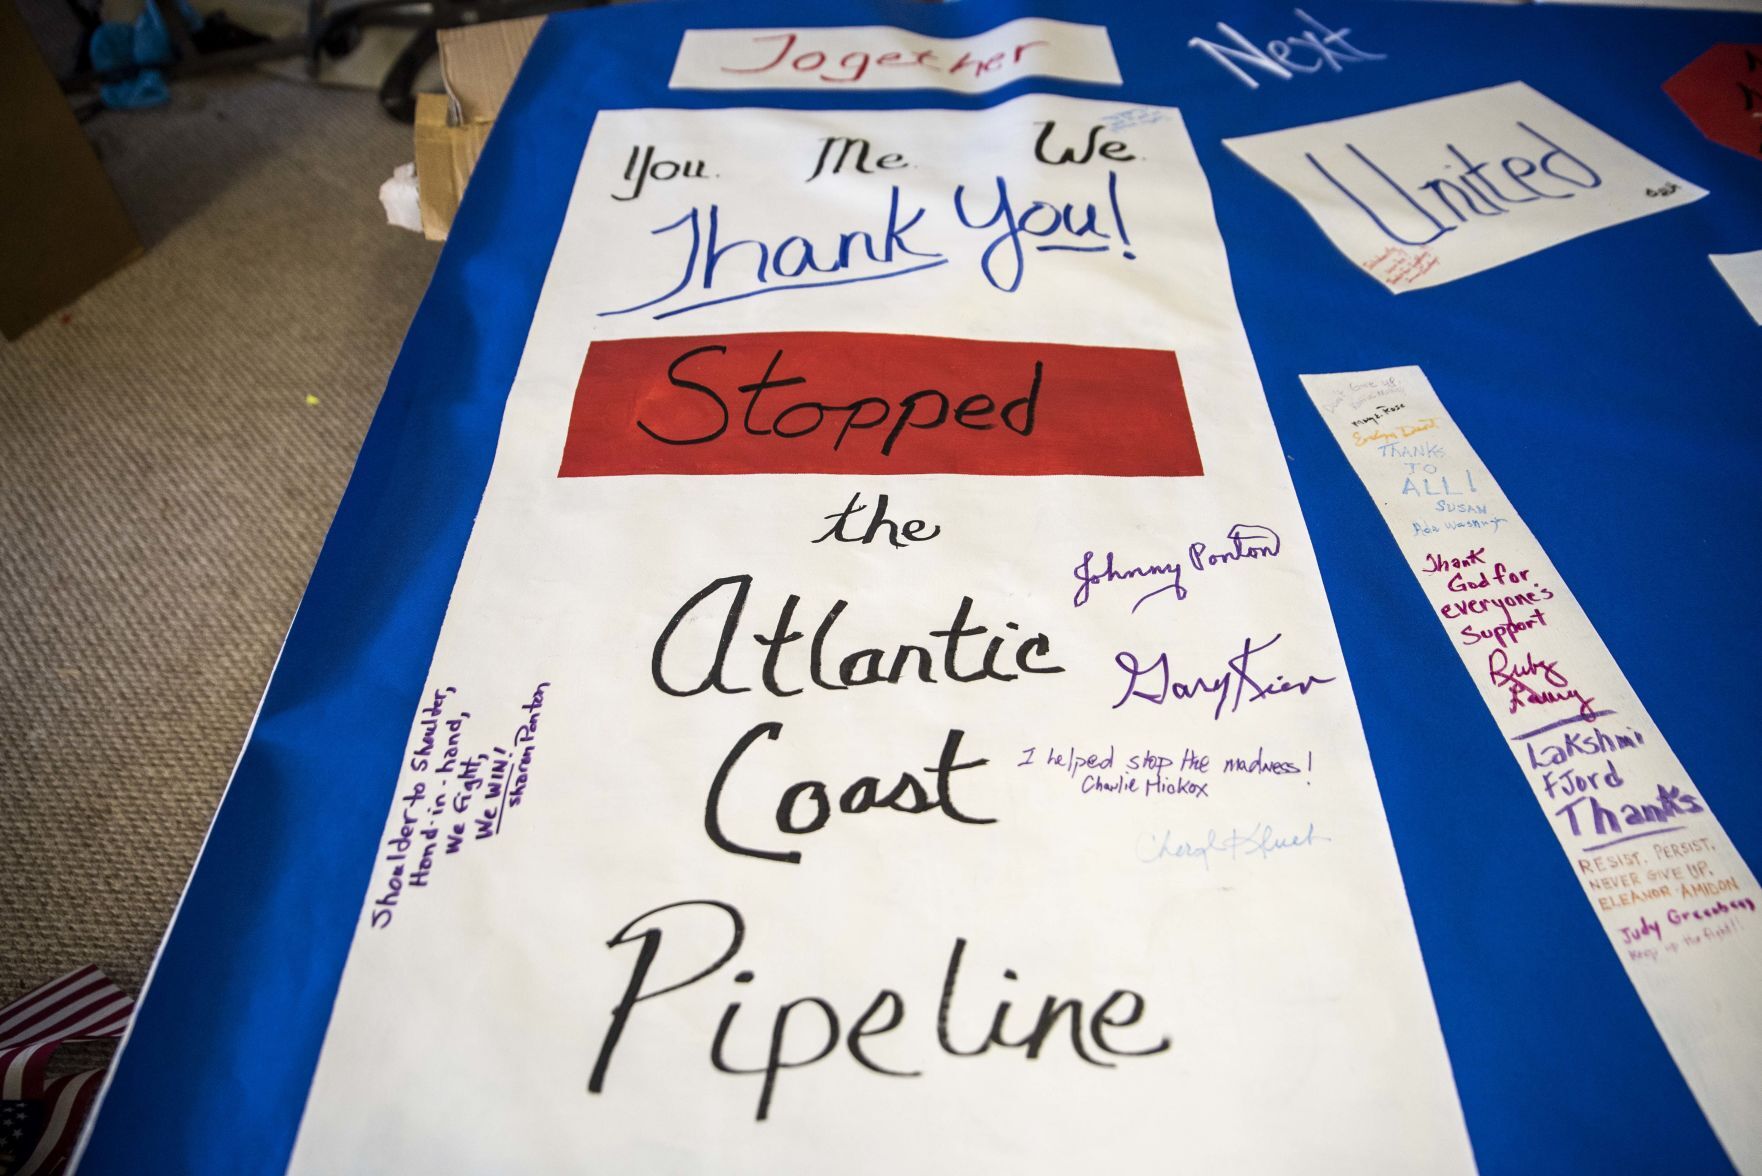 Together
Next
You. Me. We.
Thank You!
United
Stopped
the
Atlantic
Coast
Pipeline
Johnny Ponton
I helped stop the madness!
Charlie Hickox
Shoulder to Shoulder,
Hand-in-hand,
We fight,
We WIN!
Sharon Ponton
THANKS
TO
ALL!
SUSAN
Thank
God for
everyone's
Support
Ruby
Laury
Lakshmi
Fjord
Thanks
RESIST. PERSIST.
NEVER GIVE UP.
ELEANOR AMIDON
Judy Greenberg
Keep up the fight!!